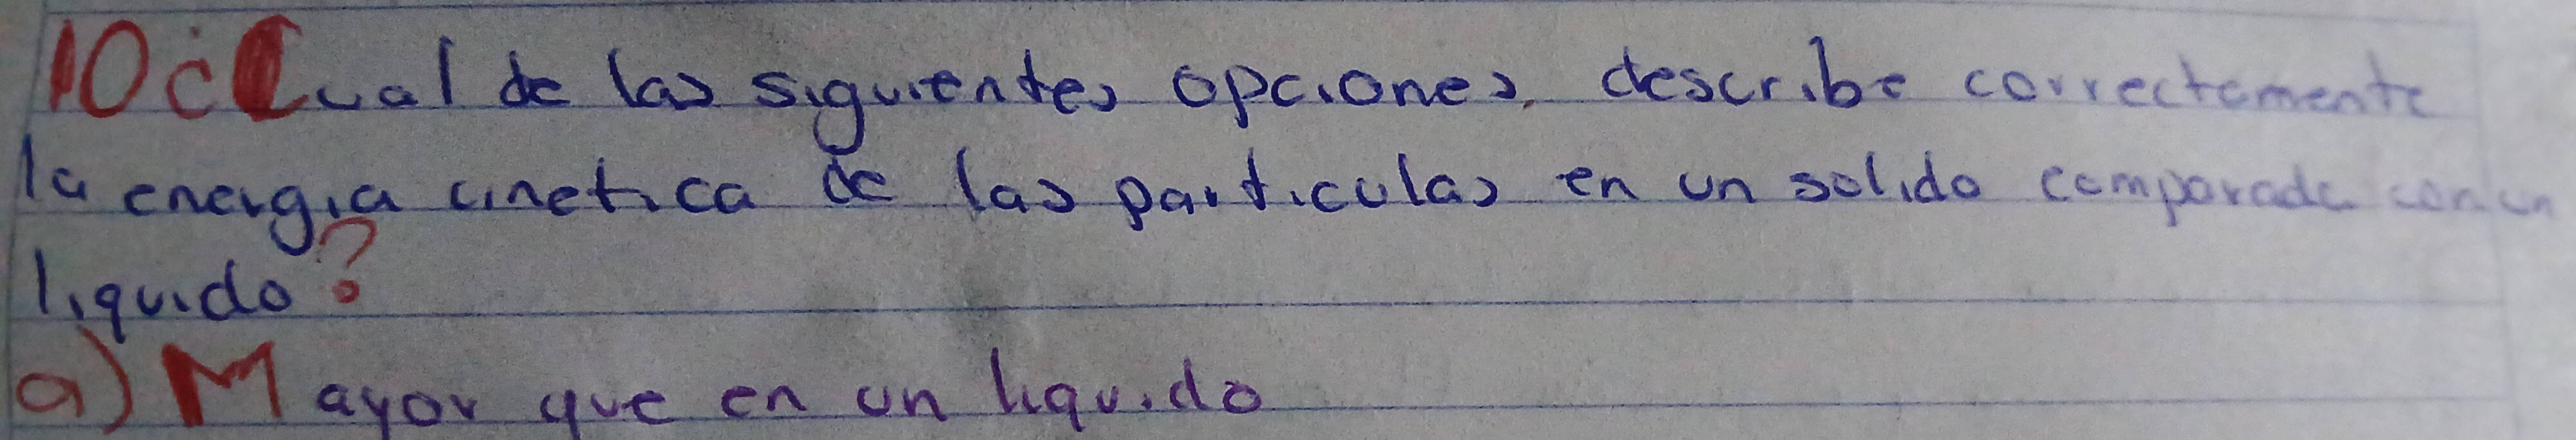 10 ¿Cual de las siguientes opciones, describe correctamente
la energia cinetica de las particulas en un solido comparada con un
liquido?
a) Mayor que en un liquido